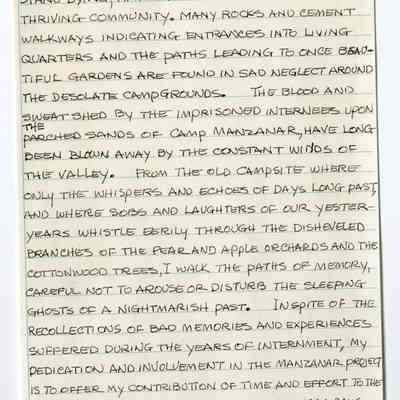 THRIVING COMMUNITY. MANY ROCKS AND CEMENT
WALKWAYS INDICATING ENTRANCES INTO LIVING
QUARTERS AND THE PATHS LEADING TO ONCE BEAU-
TIFUL GARDENS ARE FOUND IN SAD NEGLECT AROUND
THE DESOLATE CAMPGROUNDS. THE BLOOD AND
SWEAT SHED BY THE IMPRISONED INTERNEES UPON
THE
PARCHED SANDS OF CAMP MANZANAR, HAVE LONG
BEEN BLOWN AWAY BY THE CONSTANT WINDS OF
THE VALLEY. FROM THE OLD CAMPSITE WHERE
ONLY THE WHISPERS AND ECHOES OF DAYS LONG PAST,
AND WHERE SOBS AND LAUGHTERS OF OUR YESTER-
YEARS WHISTLE EERILY THROUGH THE DISHEVELED
BRANCHES OF THE PEAR AND APPLE ORCHARDS AND THE
COTTONWOOD TREES, I WALK THE PATHS OF MEMORY,
CAREFUL NOT TO AROUSE OR DISTURB THE SLEEPING
GHOSTS OF A NIGHTMARISH PAST. IN SPITE OF THE
RECOLLECTIONS OF BAD MEMORIES AND EXPERIENCES
SUFFERED DURING THE YEARS OF INTERNMENT, MY
DEDICATION AND INVOLVEMENT IN THE MANZANAR PROJECT
IS TO OFFER MY CONTRIBUTION OF TIME AND EFFORT TO THE